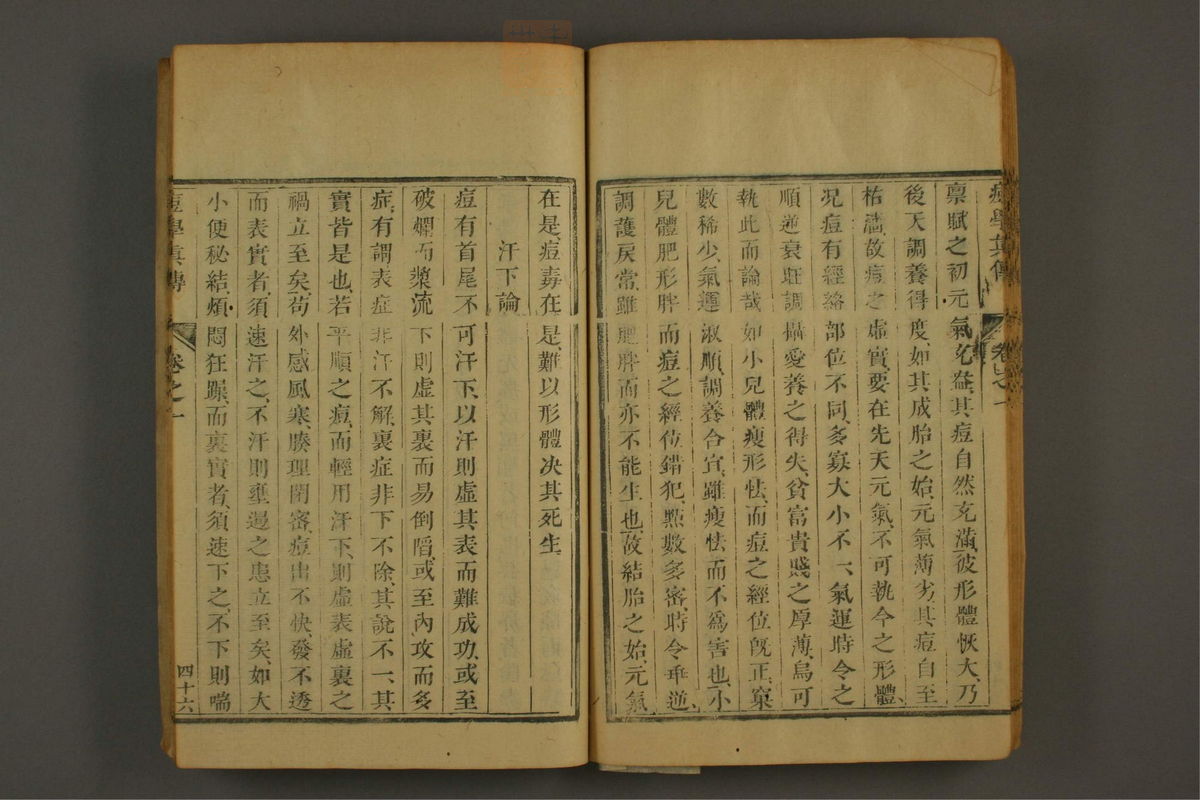 痘學眞傳 卷之一
禀賦之初元氣充益其痘自然充滿彼形體恢大乃
後天調養得度如其成胎之始元氣薄劣其痘自至
枯澁故痘之虛實要在先天元氣不可執今之形體
况痘有經絡部位不同多寡大小不一氣運時令之
順逆衰旺調攝愛養之得失貧富貴賤之厚薄烏可
執此而論哉如小兒體瘦形怯而痘之經位旣正窠
數稀少氣運淑順調養合宜雖瘦怯而不爲害也小
兒體肥形胖而痘之經位錯犯㸃數多密時令乖逆
調護戾常雖肥胖而亦不能生也故結胎之始元氣
在是痘毒在是難以形體决其死生
汗下論
痘有首尾不可汗下以汗則虛其表而難成功或至
破爛而漿流下則虛其裏而易倒陷或至內攻而多
症有謂表症非汗不解裏症非下不除其說不一其
實皆是也若平順之痘而輕用汗下則虛表虛裏之
禍立至矣苟外感風寒腠理閉密痘出不快發不透
而表實者須速汗之不汗則壅遏之患立至矣如大
小便秘結煩悶狂躁而裏實者須速下之不下則喘
痘學眞傳 卷之一 四十六